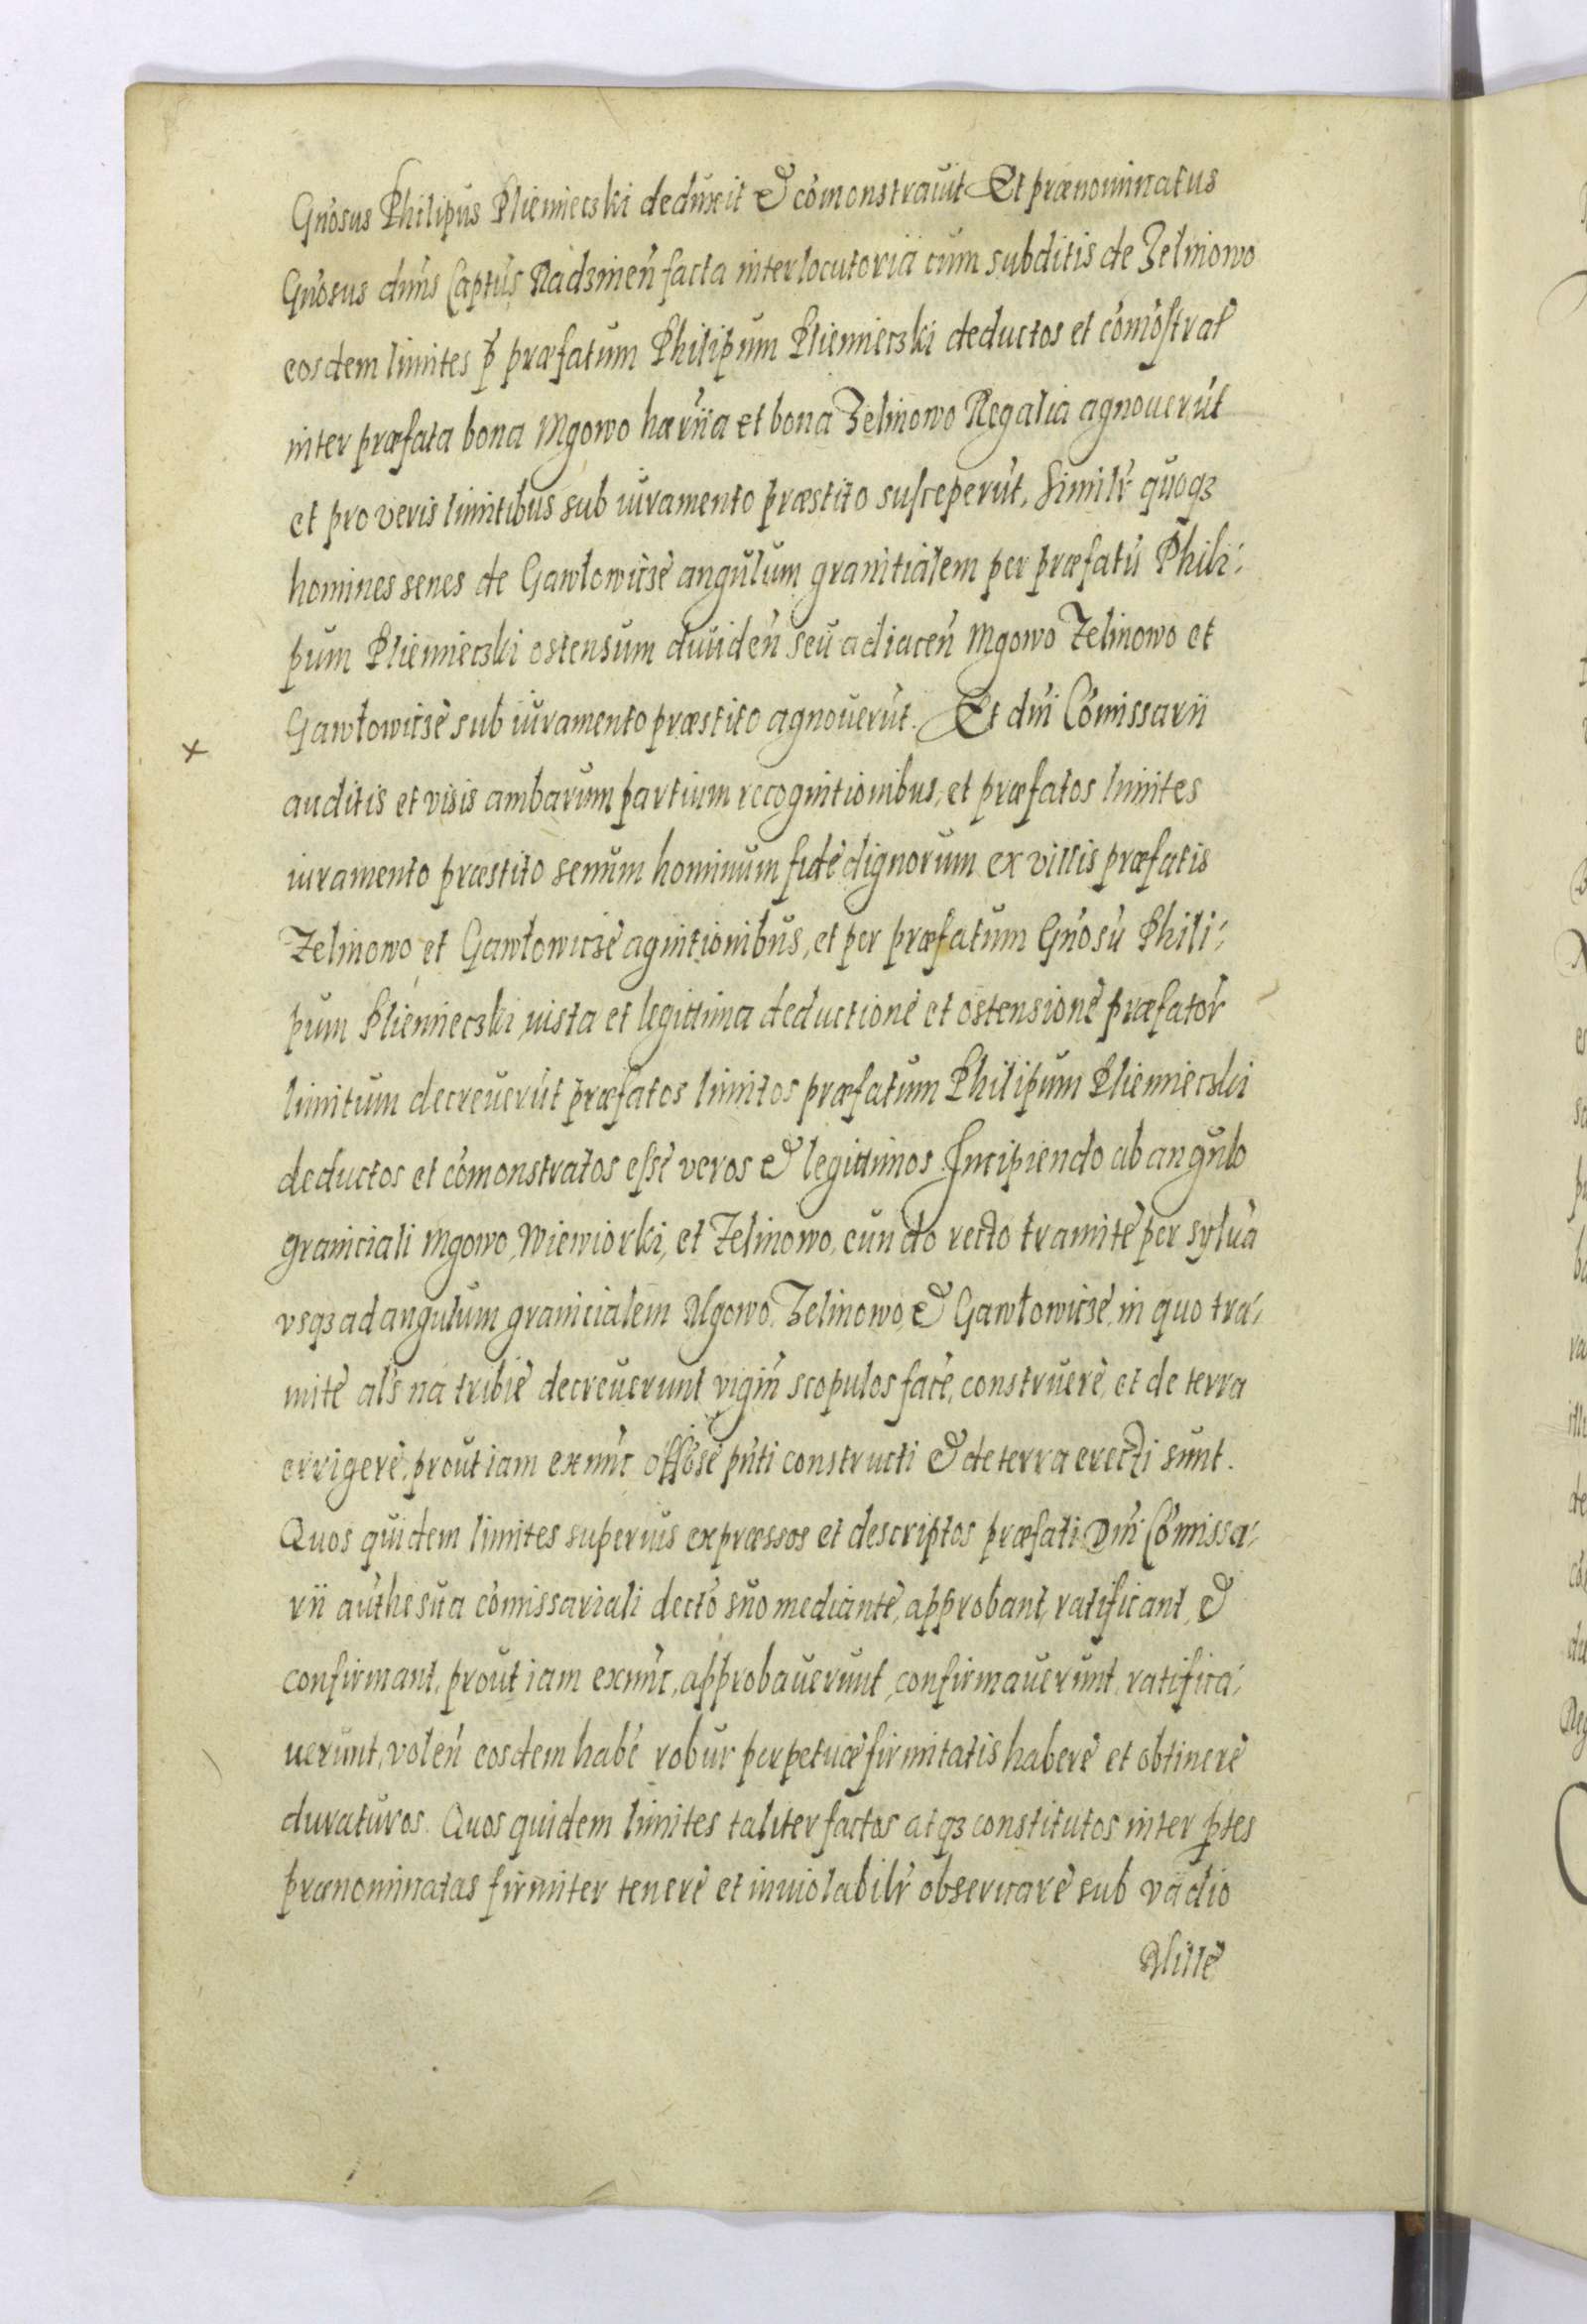 Gn̄osus Philipus Plienieczki deduxit & com̄onstrauit Et prænominatus
Gn̄osus dn̄us Captūs Radzinen̄ facta interlocutoria cum subditis de Zelinowo
eosdem limites p̄ præfatum Philipum Plienieczki deductos et com̄ōstrat̄
inter præfata bona Mgowo hær̄iia et bona Zelinowo Regalia agnouerūt
et pro veris limitibus sub iuramento præstito susceperūt, Similr̄ quoqȝ
homines senes de Gawłowicze angulum granitialem per præfatū Phili:
pum Plienieczki ostensum diuiden̄ seu adiacen̄ Mgowo Zelinowo et
Gawłowicze sub iuramento præstito agnouerūt. Et dn̄i Com̄issarii
auditis et visis ambarum partium recognitionibus, et præfatos limites
iuramento præstito senum hominum fide dignorum ex villis præfatis
Zelinowo et Gawłowicze agnitionibus, et per præfatum Gn̄osū Phili:
pum Plienieczki iusta et legittima deductione et ostensione præfator̄
limitum decreuerūt præfatos limitos præfatum Philipum Plienieczki
deductos et com̄onstratos esse veros & legittimos Incipiendo ab angulo
graniciali Mgowo, Wiewiorki, et Zelinowo, eundo recto tramite per syluā
vsqȝ ad angulum granicialem Mgowo, Zelinowo, & Gawłowicze, in quo tra:
mite al̄s na tribie decreuerunt vigin̄ scopulos face, construere, et de terra
errigere, prout iam exnūc offōse pn̄ti constructi & de terra erecti sunt.
Quos quidem limites superius expræssos et descriptos præfati Dn̄i Com̄issa:
rii auth̄e sua com̄issariali decto suo mediante, approbant, ratificant, &
confirmant, prout iam exnūc, approbauerunt, confirmauerunt, ratifica:
uerunt, volen̄ eosdem habe robur perpetuæ firmitatis habere et obtinere
duraturos. Quos quidem limites taliter factos atqȝ constitutos inter p̄tes
prænominatas firmiter tenere et inuiolabilr̄ obseruare sub vadio
Mille